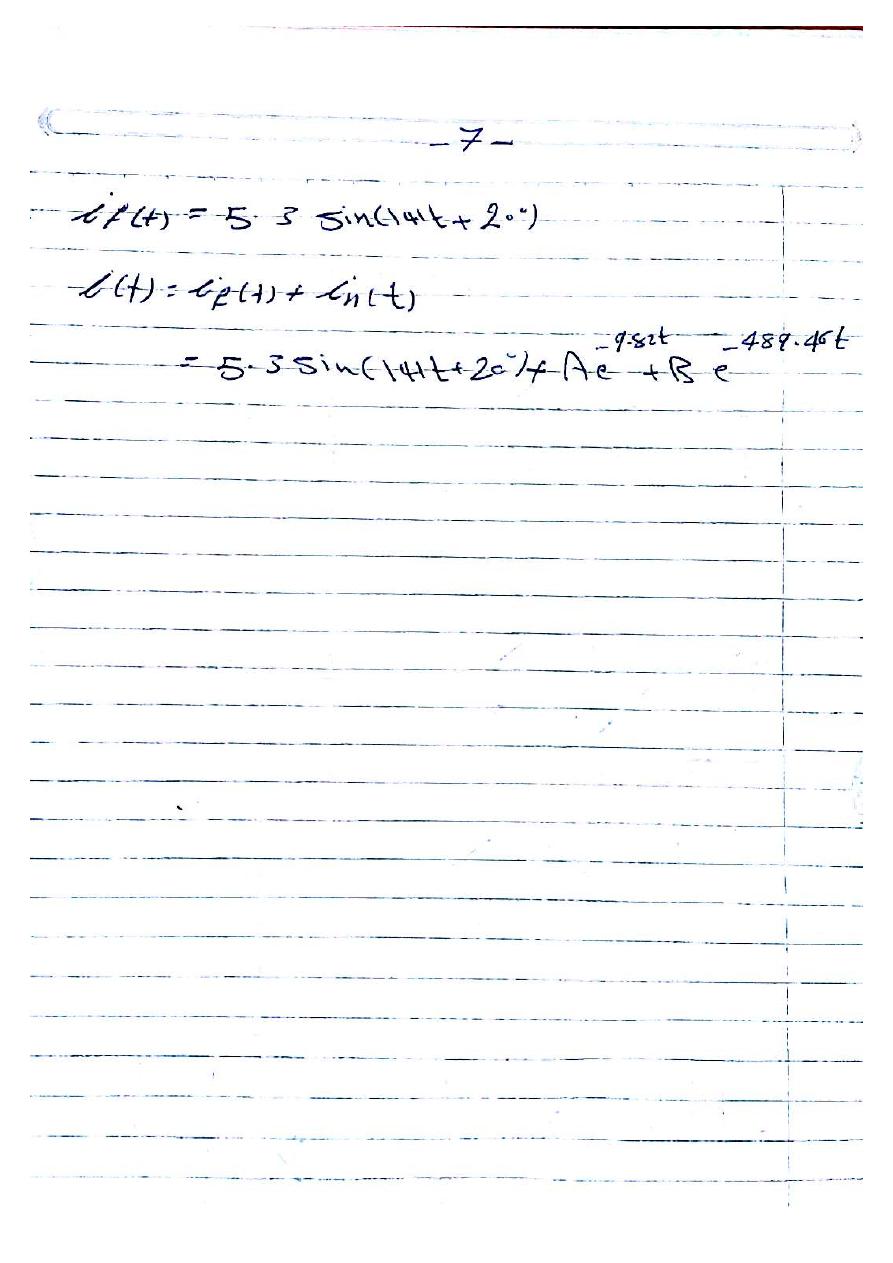 -7-
if(t) = 5.3 sin(141t + 20°)
i(t) = if(t) + in(t)
= 5.3 sin(141t + 20°) + Ae^-9.82t + B e^-489.46t